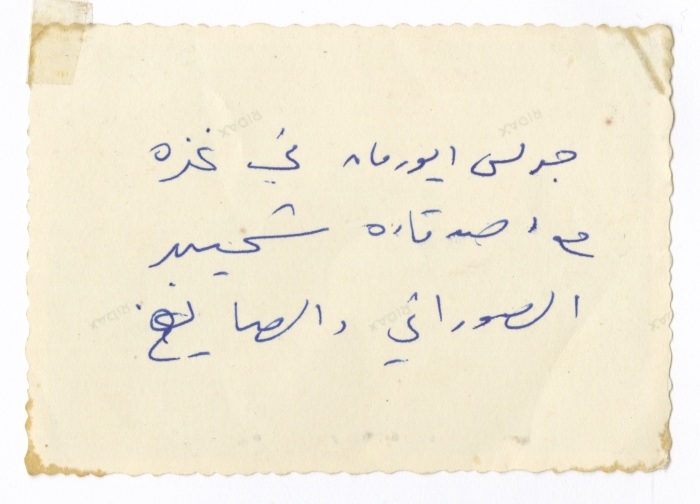 جولس ابورمان في غزه
مع اصدقائه شحيبر
الصوراني والصايغ
RIDAX RIDAX
RIDAX RIDAX